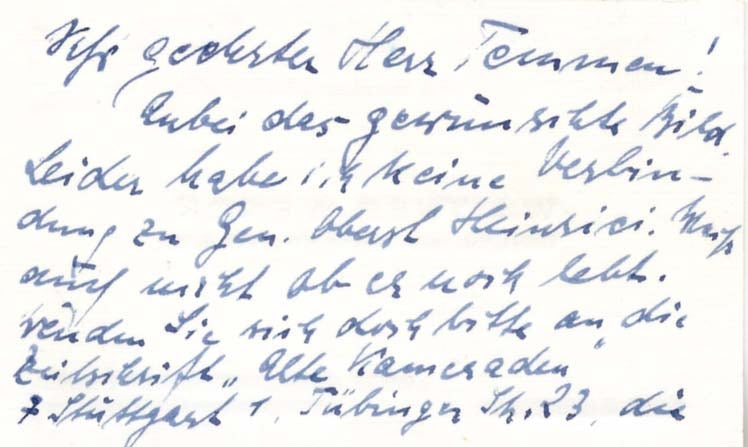 Sehr geehrter Herr Temmen!
Anbei das gewünschte Bild.
Leider habe ich keine Verbin-
dung zu Gen. Oberst Heinrici. Weiß
auch nicht ob er noch lebt.
Wenden Sie sich doch bitte an die
Zeitschrift „Alte Kameraden"
7 Stuttgart 1, Tübinger Str. 23, die